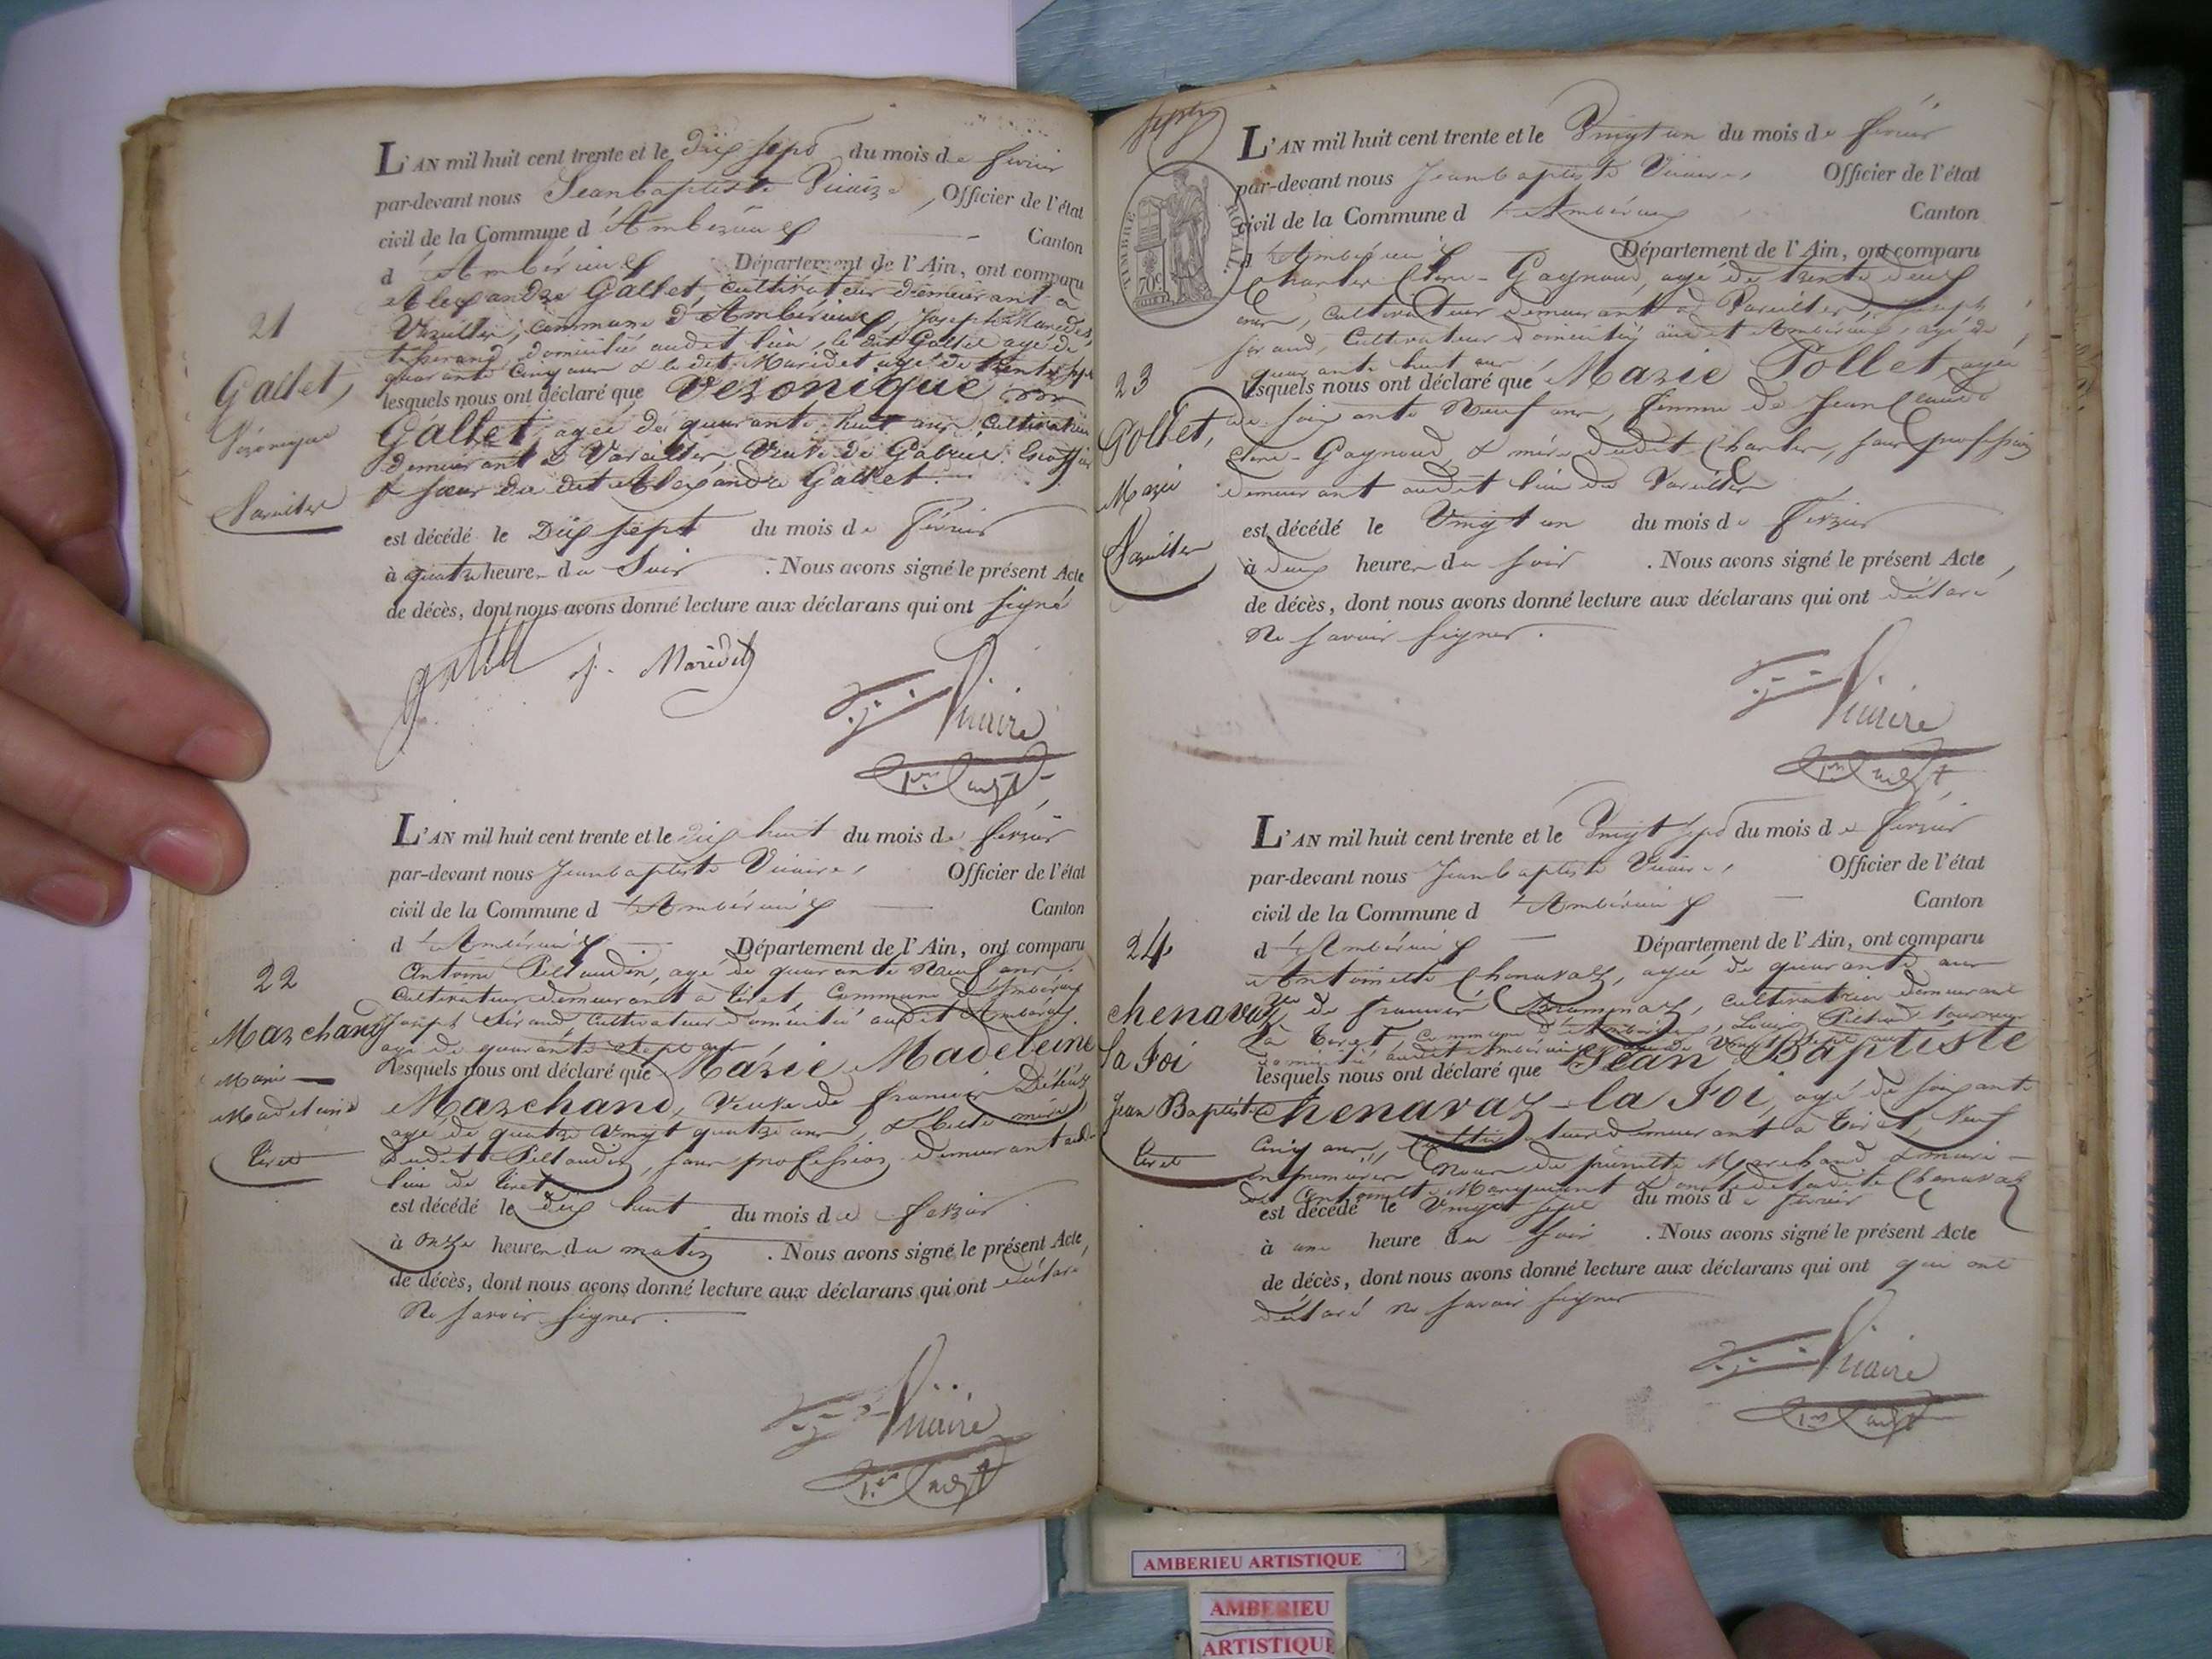 L'AN mil huit cent trente et le Dix sept du mois de fevrier
par-devant nous Jeanbaptiste Vicaire, Officier de l'état
civil de la Commune d'Ambérieux Canton
d'Ambérieux Département de l'Ain, ont comparu
Alexandre Gallet, Cultivateur demeurant à
Vareilles, commune d'Ambérieux, Joseph Maridet,
tisserand, domicilié audit lieu, le dit Gallet agé de
quarante cinq ans & le dit Maridet agé de trente sept
21
Gallet,
Véronique
Vareilles
lesquels nous ont déclaré que Véronique
Gallet, agée de quarante huit ans Cultivatrice
demeurant à Vareilles, Veuve de Gabriel
& sœur du dit Alexandre Gallet.
est décédé le Dix sept du mois de février
à quatre heures du Soir. Nous avons signé le présent Acte
de décès, dont nous avons donné lecture aux déclarans qui ont signé
gallet j. Maridet
Vicaire
L'AN mil huit cent trente et le dix huit du mois de fevrier
par-devant nous Jeanbaptiste Vicaire, Officier de l'état
civil de la Commune d'Ambérieux Canton
d'Ambérieux Département de l'Ain, ont comparu
Antoine Pellaudin, agé de quarante Neuf ans,
Cultivateur demeurant à tiret, Commune d'Ambérieux
Joseph Sirand, Cultivateur domicilié audit Ambérieux
agé de quarante
22
Marchand
Marie
Madeleine
tiret
lesquels nous ont déclaré que Marie Madeleine
Marchand, Veuve de françois
agé de quatre Vingt quatre ans, & belle mère
dudit Pellaudin, sans profession demeurant audit
lieu de tiret
est décédé le dix huit du mois de fevrier
à onze heures du matin. Nous avons signé le présent Acte,
de décès, dont nous avons donné lecture aux déclarans qui ont déclaré
Ne savoir signer.
Vicaire
TIMBRE ROYAL
70c
L'AN mil huit cent trente et le Vingt un du mois de fevrier
par-devant nous Jeanbaptiste Vicaire, Officier de l'état
civil de la Commune d'Ambérieux Canton
d'Ambérieux Département de l'Ain, ont comparu
Charles Gagnoud, agé de trente deux
ans, Cultivateur demeurant à Vareilles, & Joseph
Sirand, Cultivateur domicilié audit Ambérieux, agé de
quarante huit ans,
23
Pollet,
Marie
Vareilles
lesquels nous ont déclaré que Marie Pollet, agée
de soixante Neuf ans, femme de Jean Claude
Gagnoud, & mère dudit Charles, sans profession
demeurant audit lieu de Vareilles
est décédé le Vingt un du mois de fevrier
à deux heures du soir. Nous avons signé le présent Acte,
de décès, dont nous avons donné lecture aux déclarans qui ont déclaré
Ne savoir signer.
Vicaire
L'AN mil huit cent trente et le Vingt sept du mois de fevrier
par-devant nous Jeanbaptiste Vicaire, Officier de l'état
civil de la Commune d'Ambérieux Canton
d'Ambérieux Département de l'Ain, ont comparu
Antoinette Chenavaz, agée de quarante ans
de françois, cultivatrice demeurant
à tiret, Commune d'Ambérieux, Louis
domicilié audit Ambérieux
24
chenavaz
la Foi
Jean Baptiste
tiret
lesquels nous ont déclaré que Jean Baptiste
chenavaz-la Foi, agé de soixante
cinq ans, Cultivateur demeurant à tiret, Veuf
en premières Noces de Marchand & mari
de Antoinette & oncle de ladite Chenavaz
est décédé le Vingt sept du mois de fevrier
à une heure du soir. Nous avons signé le présent Acte
de décès, dont nous avons donné lecture aux déclarans qui ont qui ont
déclaré ne savoir signer
Vicaire
AMBERIEU ARTISTIQUE
AMBERIEU
ARTISTIQUE